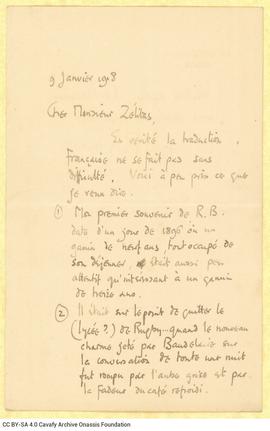 9 Janvier 1918
Cher Monsieur Zélitas,
En vérité la traduction
Française ne se fait pas sans
difficulté. Voici à peu près ce que
je veux dire.
① Mon premier souvenir de R.B.
date d'un jour de 1896 où un
gamin de neuf ans, tout occupé de
son déjeuner était aussi peu
attentif qu'intéressant à un gamin
de treize ans.
② Il était sur le point de quitter le
(lycée?) de Rugby... quand le nouveau
charme jeté par Baudelaire sur
la conversation de toute une nuit
fut rompu par l'aube grise et par
la fadeur du café refroidi.
CC BY-SA 4.0 Cavafy Archive Onassis Foundation